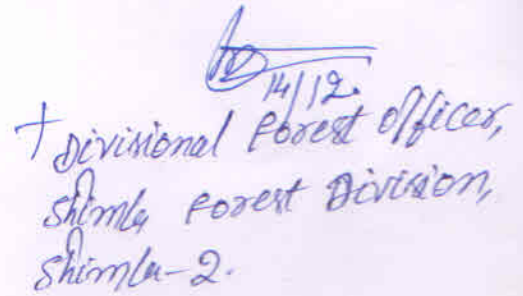 14/12.
Divisional Forest Officer,
Shimla Forest Division,
Shimla-2.